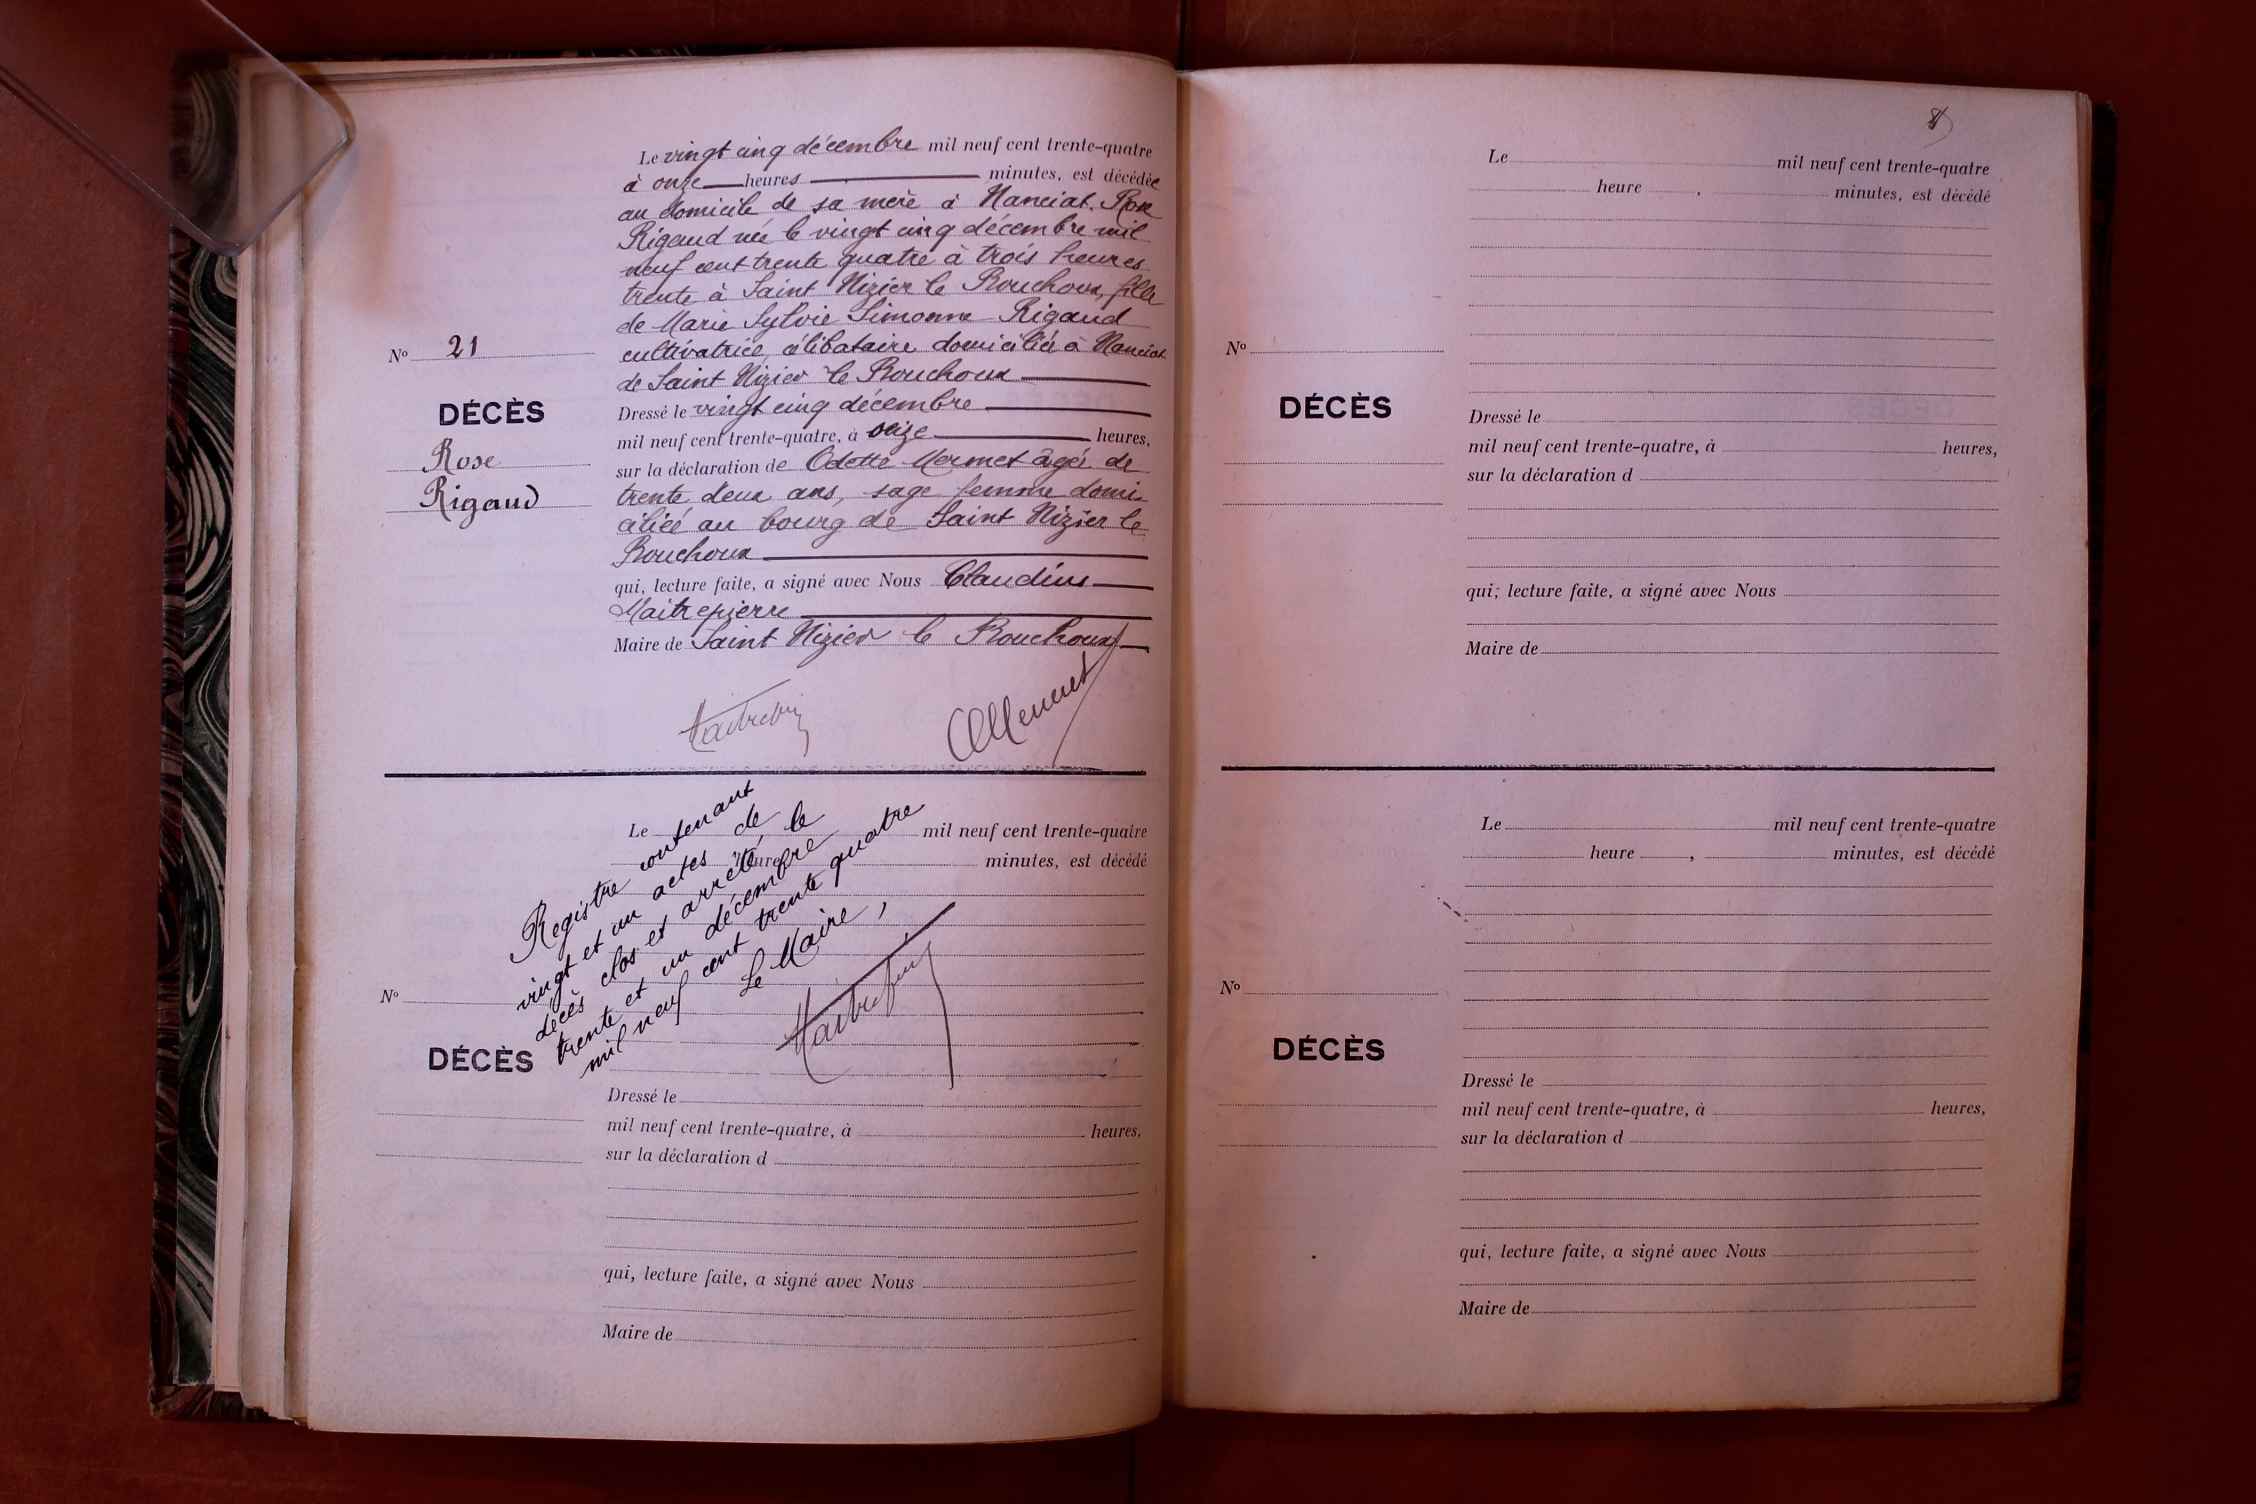 Le vingt cinq décembre mil neuf cent trente-quatre
à onze heures minutes, est décédée
au domicile de sa mère à Manciat, Rose
Rigaud née le vingt cinq décembre mil
neuf cent trente quatre à trois heures
trente à Saint Nizier le Bouchoux, fille
de Marie Sylvie Simonne Rigaud
cultivatrice, célibataire domiciliée à Manciat
de Saint Nizier le Bouchoux
Nº 21
DÉCÈS
Rose
Rigaud
Dressé le vingt cinq décembre
mil neuf cent trente-quatre, à seize heures,
sur la déclaration de Odette Mermet âgée de
trente deux ans, sage femme domi-
ciliée au bourg de Saint Nizier le
Bouchoux
qui, lecture faite, a signé avec Nous Claudius
Maitrepierre
Maire de Saint Nizier le Bouchoux
Le heure mil neuf cent trente-quatre
minutes, est décédé
Registre contenant
vingt et un actes de
décès clos et arrêté le
trente et un décembre
mil neuf cent trente quatre
Le Maire,
Nº
DÉCÈS
Dressé le
mil neuf cent trente-quatre, à heures,
sur la déclaration d
qui, lecture faite, a signé avec Nous
Maire de
8
Le mil neuf cent trente-quatre
heure , minutes, est décédé
Nº
DÉCÈS
Dressé le
mil neuf cent trente-quatre, à heures,
sur la déclaration d
qui, lecture faite, a signé avec Nous
Maire de
Le mil neuf cent trente-quatre
heure , minutes, est décédé
Nº
DÉCÈS
Dressé le
mil neuf cent trente-quatre, à heures,
sur la déclaration d
qui, lecture faite, a signé avec Nous
Maire de